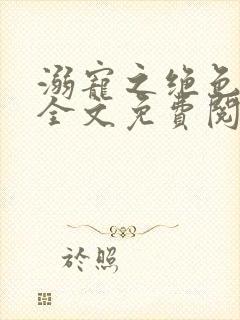 溺寵之绝色
全文免費閱
於照